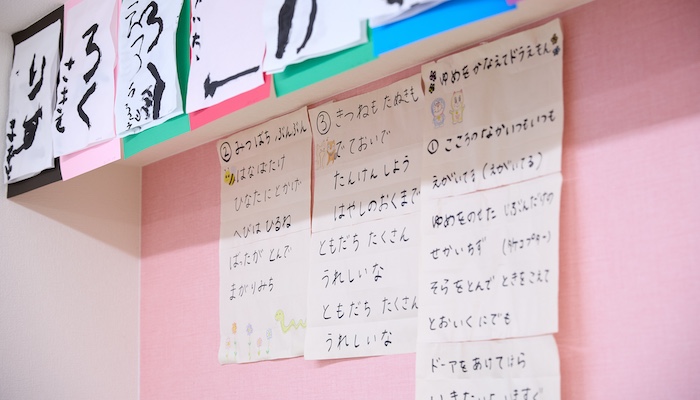 りす
ろく
② みつばち ぶんぶん
はなばたけ
ひなたにとかげ
へびは ひるね
ばったが とんで
まがりみち
③ きつねも たぬきも
でておいで
たんけん しよう
はやしのおくまで
ともだち たくさん
うれしいな
ともだち たくさん
うれしいな
ゆめをかなえてドラえもん
① こころのなか いつもいつも
えがいてる (えがいてる)
ゆめをのせた じぶんだけの
せかいちず (タケコプター)
そらをとんで ときをこえて
とおいくにでも
ドーアをあけてほら
いきたいよ いますぐ